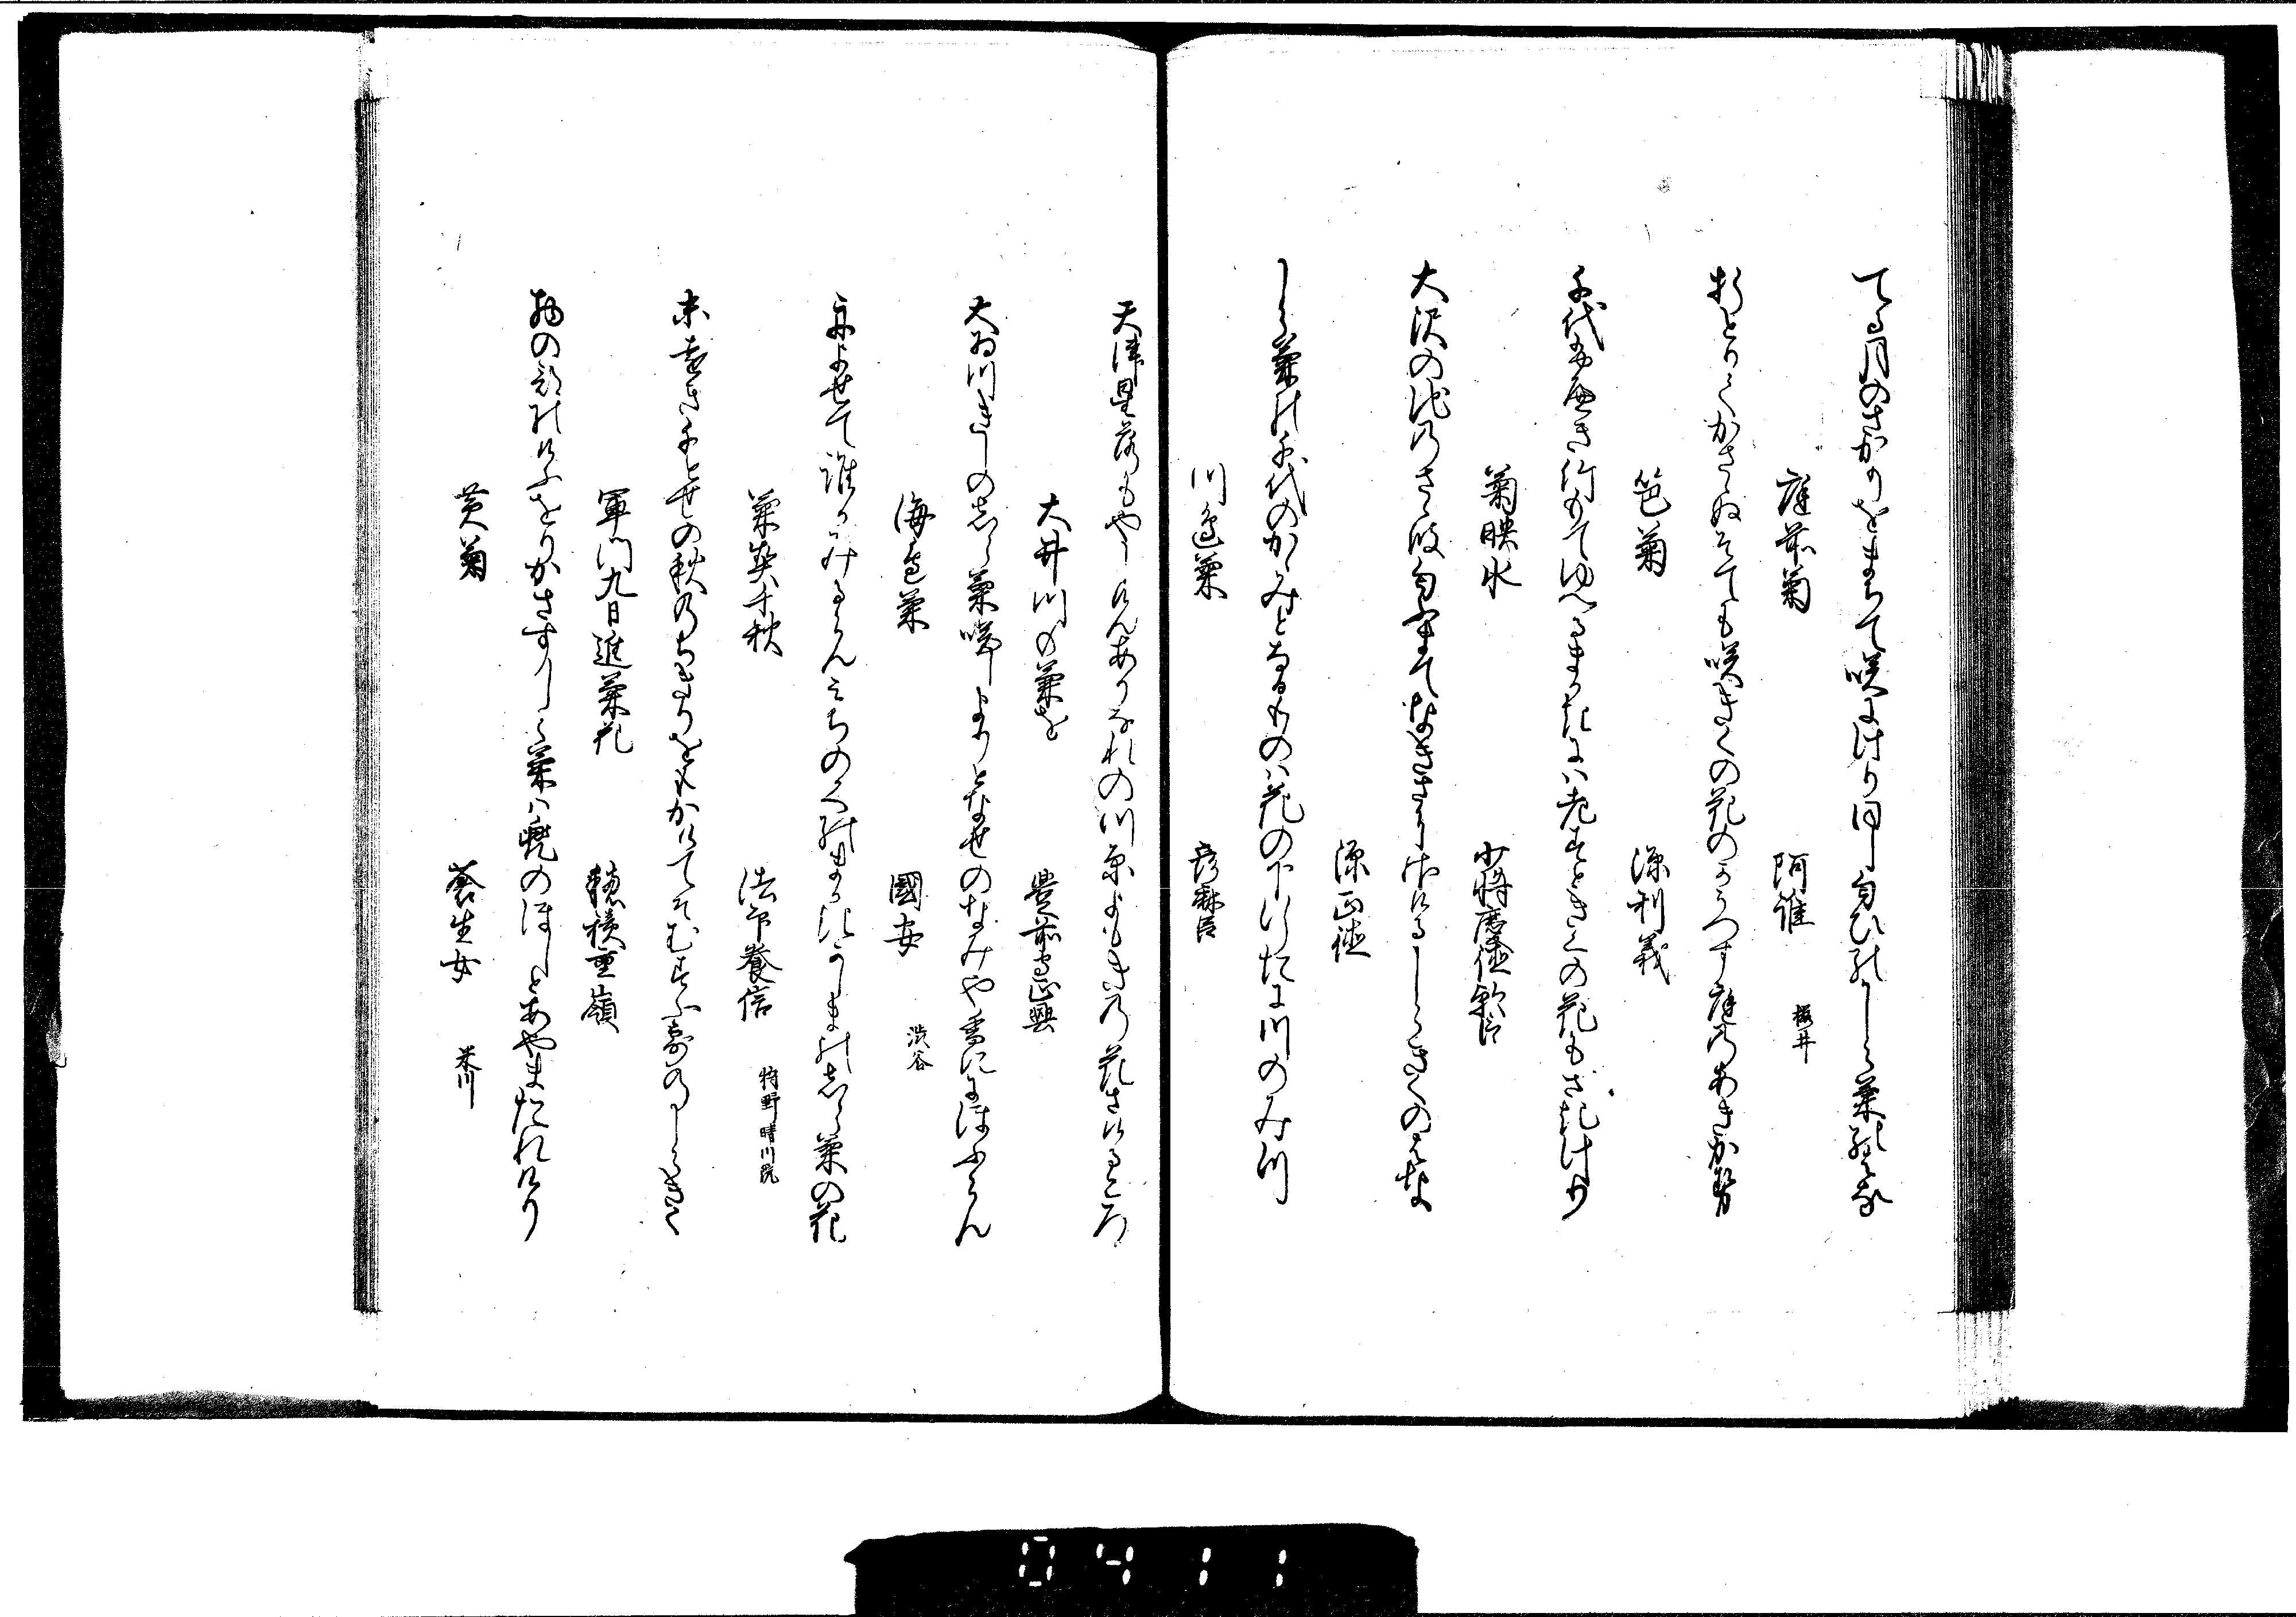 てる月のさかりをまちて咲にけり同し匂ひのしら菊の花
庭前菊 阿誰
折とりてかさゝぬそても咲きくの花のかうつす庭のあきかせ
笆菊 源利義
千代ふへき竹もてゆへるませには老せときくの花もさきけり
菊映水 少将
大沢の池のさゝ波匂ふまてなきさにさけるしらきくのはな
源正
しら菊の千代のかゝみとなるものは花の下行たに川のみつ
川辺菊
天津星落もやしけんありなれの川原よもきの花さけるころ
大井川の菊を 豊前守正興
大ゐ川きしのしら菊咲しよりとなせのなみや香ににほふらん
海辺菊 國安 渋谷
舟よせて誰かみるらんみちのくのまかきかしまのしら菊の花
菊契千秋 法印養信 狩野晴川院
末遠き千とせの秋のちきりをもかけてそむすふ露のしらきく
軍門九日進菊花 穂積重嶺
物の部のけふをりかさすしら菊は兜のほしとあやまたれけり
黄菊 蒼生女 米川
0411